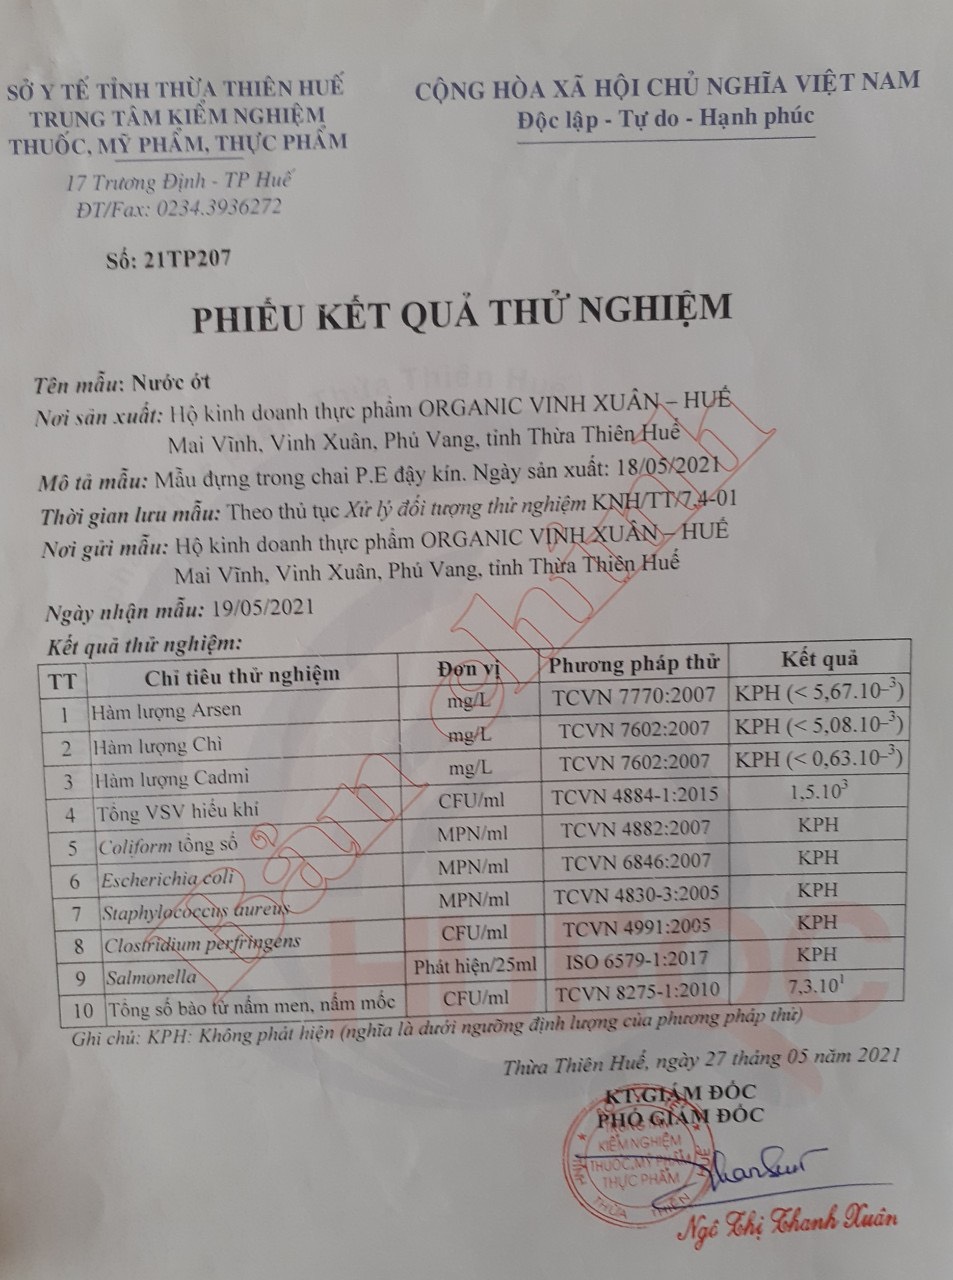 SỞ Y TẾ TỈNH THỪA THIÊN HUẾ
TRUNG TÂM KIỂM NGHIỆM
THUỐC, MỸ PHẨM, THỰC PHẨM
17 Trương Định - TP Huế
ĐT/Fax: 0234.3936272
Số: 21TP207
CỘNG HÒA XÃ HỘI CHỦ NGHĨA VIỆT NAM
Độc lập - Tự do - Hạnh phúc
PHIẾU KẾT QUẢ THỬ NGHIỆM
Tên mẫu: Nước ớt
Nơi sản xuất: Hộ kinh doanh thực phẩm ORGANIC VINH XUÂN – HUẾ
Mai Vĩnh, Vinh Xuân, Phú Vang, tỉnh Thừa Thiên Huế
Mô tả mẫu: Mẫu đựng trong chai P.E đậy kín. Ngày sản xuất: 18/05/2021
Thời gian lưu mẫu: Theo thủ tục Xử lý đối tượng thử nghiệm KNH/TT/7.4-01
Nơi gửi mẫu: Hộ kinh doanh thực phẩm ORGANIC VINH XUÂN – HUẾ
Mai Vĩnh, Vinh Xuân, Phú Vang, tỉnh Thừa Thiên Huế
Ngày nhận mẫu: 19/05/2021
Kết quả thử nghiệm:
TT Chỉ tiêu thử nghiệm Đơn vị Phương pháp thử Kết quả
1 Hàm lượng Arsen mg/L TCVN 7770:2007 KPH (< 5,67.10⁻³)
2 Hàm lượng Chì mg/L TCVN 7602:2007 KPH (< 5,08.10⁻³)
3 Hàm lượng Cadmi mg/L TCVN 7602:2007 KPH (< 0,63.10⁻³)
4 Tổng VSV hiếu khí CFU/ml TCVN 4884-1:2015 1,5.10³
5 Coliform tổng số MPN/ml TCVN 4882:2007 KPH
6 Escherichia coli MPN/ml TCVN 6846:2007 KPH
7 Staphylococcus aureus MPN/ml TCVN 4830-3:2005 KPH
8 Clostridium perfringens CFU/ml TCVN 4991:2005 KPH
9 Salmonella Phát hiện/25ml ISO 6579-1:2017 KPH
10 Tổng số bào tử nấm men, nấm mốc CFU/ml TCVN 8275-1:2010 7,3.10¹
Ghi chú: KPH: Không phát hiện (nghĩa là dưới ngưỡng định lượng của phương pháp thử)
Thừa Thiên Huế, ngày 27 tháng 05 năm 2021
KT.GIÁM ĐỐC
PHÓ GIÁM ĐỐC
TRUNG TÂM
KIỂM NGHIỆM
THUỐC, MỸ PHẨM
THỰC PHẨM
TỈNH THỪA THIÊN HUẾ
Ngô Thị Thanh Xuân
Bản chính
HUQC